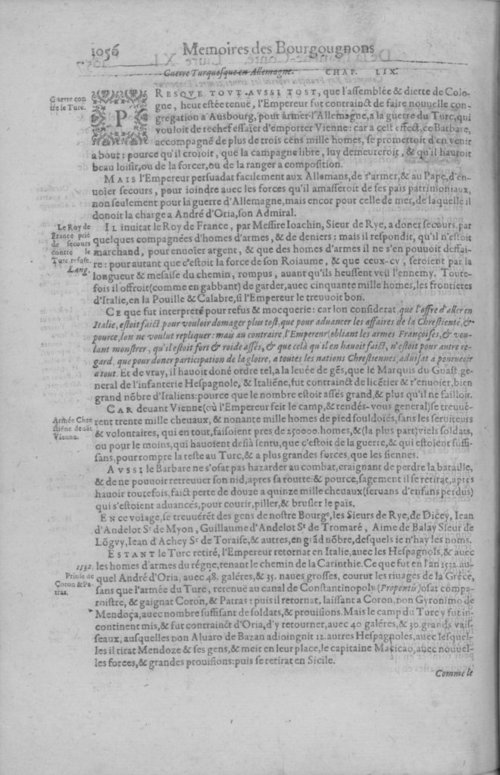 1056
Memoires des Bourgougnons
Guerre Turquesque en Allemagne. CHAP. LIX.
Guerre con
tre le Turc.
PRESQVE TOVT-AVSSI TOST, que l'assemblée & diette de Colo-
gne, heut estée tenue, l'Empereur fut contrainct de faire nouuelle con-
gregation a Ausbourg, pour armer l'Allemagne, a la guerre du Turc, qui
vouloit de rechef essaier d'emporter Vienne: car a cest effect, ce Barbare,
accompagné de plus de trois cens mille homes, se promettoit d'en venir
a bout: pource qu'il croioit, que la campagne libre, luy demeureroit, & qu'il hauroit
beau loisir, ou de la forcer, ou de la ranger a composition.
MAIS l'Empereur persuadat facilement aux Allemans, de s'armer, & au Pape, d'en-
uoier secours, pour ioindre auec les forces qu'il amasseroit de ses païs patrimoniaux,
non seulement pour la guerre d'Allemagne, mais encor pour celle de mer, de laquelle il
donoit la charge a André d'Oria, son Admiral.
Le Roy de
France prié
de secours
contre le
Turc refuse.
Lang.
IL inuitat le Roy de France, par Messire Ioachin, Sieur de Rye, a doner secours, par
quelques compagnées d'homes d'armes, & de deniers: mais il respondit, qu'il n'estoit
marchand, pour enuoier argent, & que des homes d'armes il ne s'en pouuoit desfai-
re: pour autant que c'estoit la force de son Roiaume, & que ceux-cy, seroient par la
longueur & mesaise du chemin, rompus, auant qu'ils heussent veü l'ennemy. Toute-
fois il offroit (comme en gabbant) de garder, auec cinquante mille homes, les frontieres
d'Italie, en la Pouille & Calabre, si l'Empereur le treuuoit bon.
CE que fut interpreté pour refus & mocquerie: car lon considerat que l'offre d'aller en
Italie, estoit faict pour vouloir domager plus tost, que pour aduancer les affaires de la Chrestienté, &
pource, lon ne voulut repliquer: mau au contraire, l'Empereur, oblitant les armes Françoises, & vou-
lant monstrer, qu'il estoit fort & roide assés, & que cela qu'il en hauoit faict, n'estoit pour autre re-
gard, que pour doner participation de la gloire, a toutes les nations Chrestiennes, aduisat a pouruoir
a tout. Et de vray, il hauoit doné ordre tel, a la leuée de gēs, que le Marquis du Guast general
neral de l'infanterie Hespagnole, & Italiēne, fut contrainct de licētier & r'enuoier, bien
grand nōbre d'Italiens: pource que le nombre estoit assés grand, & plus qu'il ne failloit.
Armée Chre
stiēne deuāt
Vienne.
CAR deuant Vienne (où l'Empereur feit le camp, & rendés-vous general) se treuue-
rent trente mille cheuaux, & nonante mille homes de pied souldoiés, sans les seruiteurs
& volontaires, qui en tout, faisoient pres de 250000. homes, & (la plus part) vielz soldats,
ou pour le moins, qui hauoient desia sentu, que c'estoit de la guerre, & qui estoient suffi-
sans, pour rompre la teste au Turc, & a plus grandes forces, que les siennes.
AVSSI le Barbare ne s'osat pas hazarder au combat, craignant de perdre la bataille,
& de ne pouuoir retreuuer son nid, apres sa routte & pource, sagement il se retirat, après
hauoir toutefois, faict perte de douze a quinze mille cheuaux (seruans d'enfans perdus)
qui s'estoient aduancés, pour courir, piller, & brusler le païs.
EN ce voiage, se treuuerēt des gens de nostre Bourgᵉ, les Sieurs de Rye, de Dicey, Iean
d'Andelot Sʳ de Myon, Guillaume d'Andelot Sʳ de Tromaré, Aime de Balay Sieur de
Lōgvy, Iean d'Achey Sʳ de Toraise, & autres, en grād nōbre, desquels ie n'hay les noms.
1532.
Prinse de
Coron & Pa-
tras.
ESTANT le Turc retiré, l'Empereur retornat en Italie, auec les Hespagnols, & auec
les homes d'armes du régne, tenant le chemin de la Carinthie. Ce que fut en l'an 1532. au-
quel André d'Oria, auec 48. galéres, & 35. naues grosses, courut les riuages de la Grèce,
sans que l'armée du Turc, retenue au canal de Constantinopoly (Propontis) osat compa-
roistre, & gaignat Coron, & Patras: puis il retornat, laissant a Coron, don Gyronimo de
Mendoça, auec nombre suffisant de soldats, & prouisions. Mais le camp du Turc y fut in-
continent mis, & fut contrainct d'Oria, d'y retourner, auec 40 galéres, & 30 grands vais-
seaux, ausquelles non Aluaro de Bazan adioingnit 12. autres Hespagnoles, auec lesquel-
les il tirat Mendoze & ses gens, & meit en leur place, le capitaine Macicao, auec nouuel-
les forces, & grandes prouisions: puis se retirat en Sicile.
Comme le